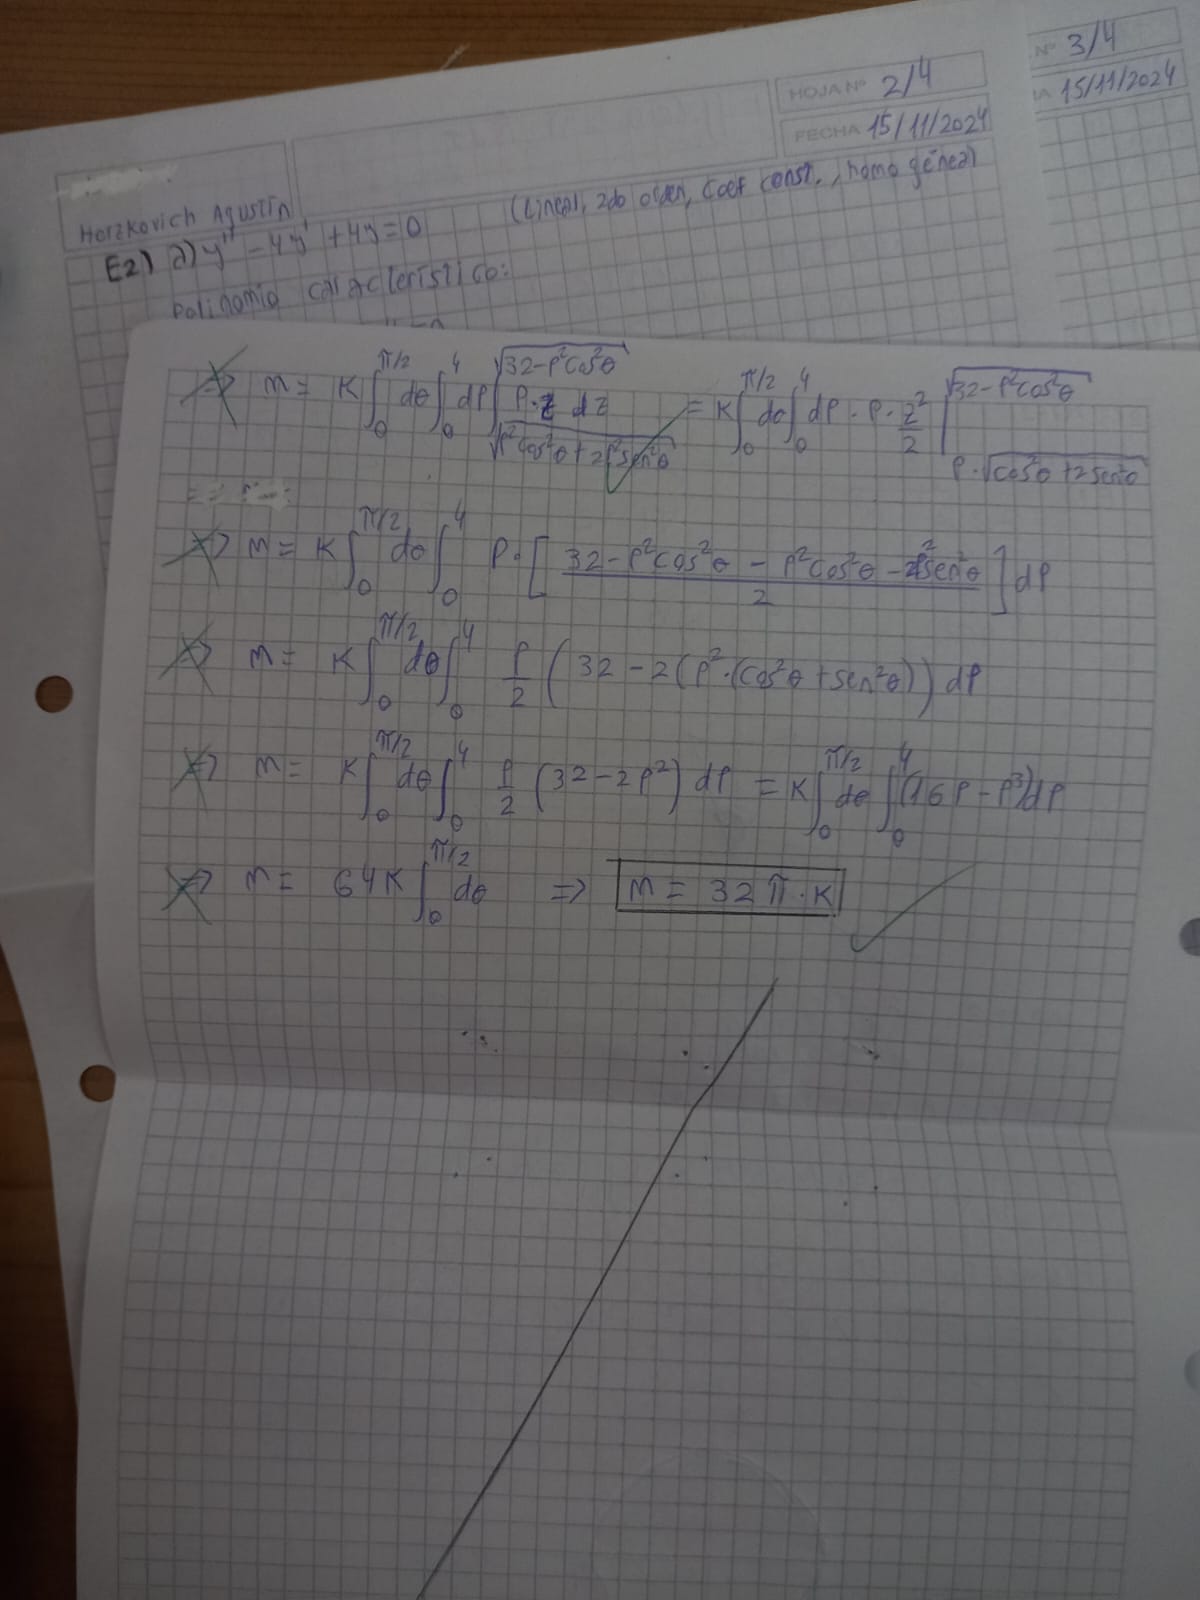 Nº 3/4
HOJA Nº 2/4
15/11/2024
FECHA 15/11/2024
Horzkovich Agustín
E2) a) y'' - 4y' + 4y = 0 (Lineal, 2do orden, coef const., homogénea)
Polinomio característico:
⇒ m = K ∫₀^{π/2} dθ ∫₀^4 dρ ∫_{√(ρ²cos²θ + 2ρ²sen²θ)}^{√(32-ρ²cos²θ)} ρ·z dz = K ∫₀^{π/2} dθ ∫₀^4 dρ · ρ · z²/2 |_{ρ·√(cos²θ + 2sen²θ)}^{√(32-ρ²cos²θ)}
⇒ m = K ∫₀^{π/2} dθ ∫₀^4 ρ·[(32 - ρ²cos²θ - ρ²cos²θ - 2ρ²sen²θ)/2] dρ
⇒ m = K ∫₀^{π/2} dθ ∫₀^4 ρ/2 (32 - 2(ρ²·(cos²θ + sen²θ)) dρ
⇒ m = K ∫₀^{π/2} dθ ∫₀^4 ρ/2 (32 - 2ρ²) dρ = K ∫₀^{π/2} dθ ∫₀^4 (16ρ - ρ³) dρ
⇒ m = 64K ∫₀^{π/2} dθ ⇒ m = 32π·K